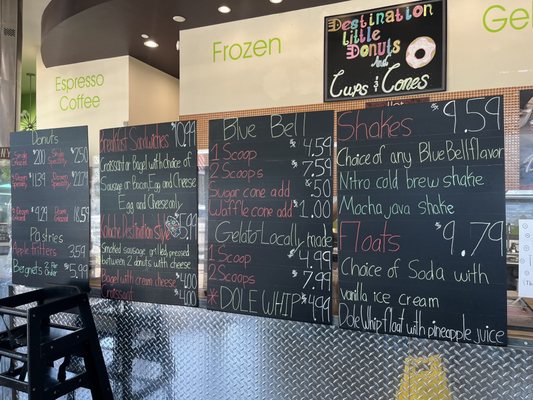 Espresso
Coffee
Frozen
Destination
Little
Donuts
And
Cups & Cones
Gel
Donuts
Pastries
Apple fritters 3.59
Beignets 2 Per Order 5.99
Breakfast Sandwiches 10.99
Croissant or Bagel with choice of
Sausage or Bacon, Egg and Cheese
Egg and Cheese only
Kolache Destination style
Smoked sausage grilled pressed
between 2 donuts with cheese
Bagel with cream cheese $4.00
Croissant $4.00
Blue Bell
1 Scoop $4.59
2 Scoops $7.59
Sugar cone add $.50
Waffle cone add $1.00
Gelato Locally made
1 Scoop $4.99
2 Scoops $7.99
*DOLE WHIP $4.99
Shakes $9.59
Choice of any Blue Bell flavor
Nitro cold brew shake
Mocha java shake
Floats $9.79
Choice of Soda with
vanilla ice cream
Dole Whip float with pineapple juice